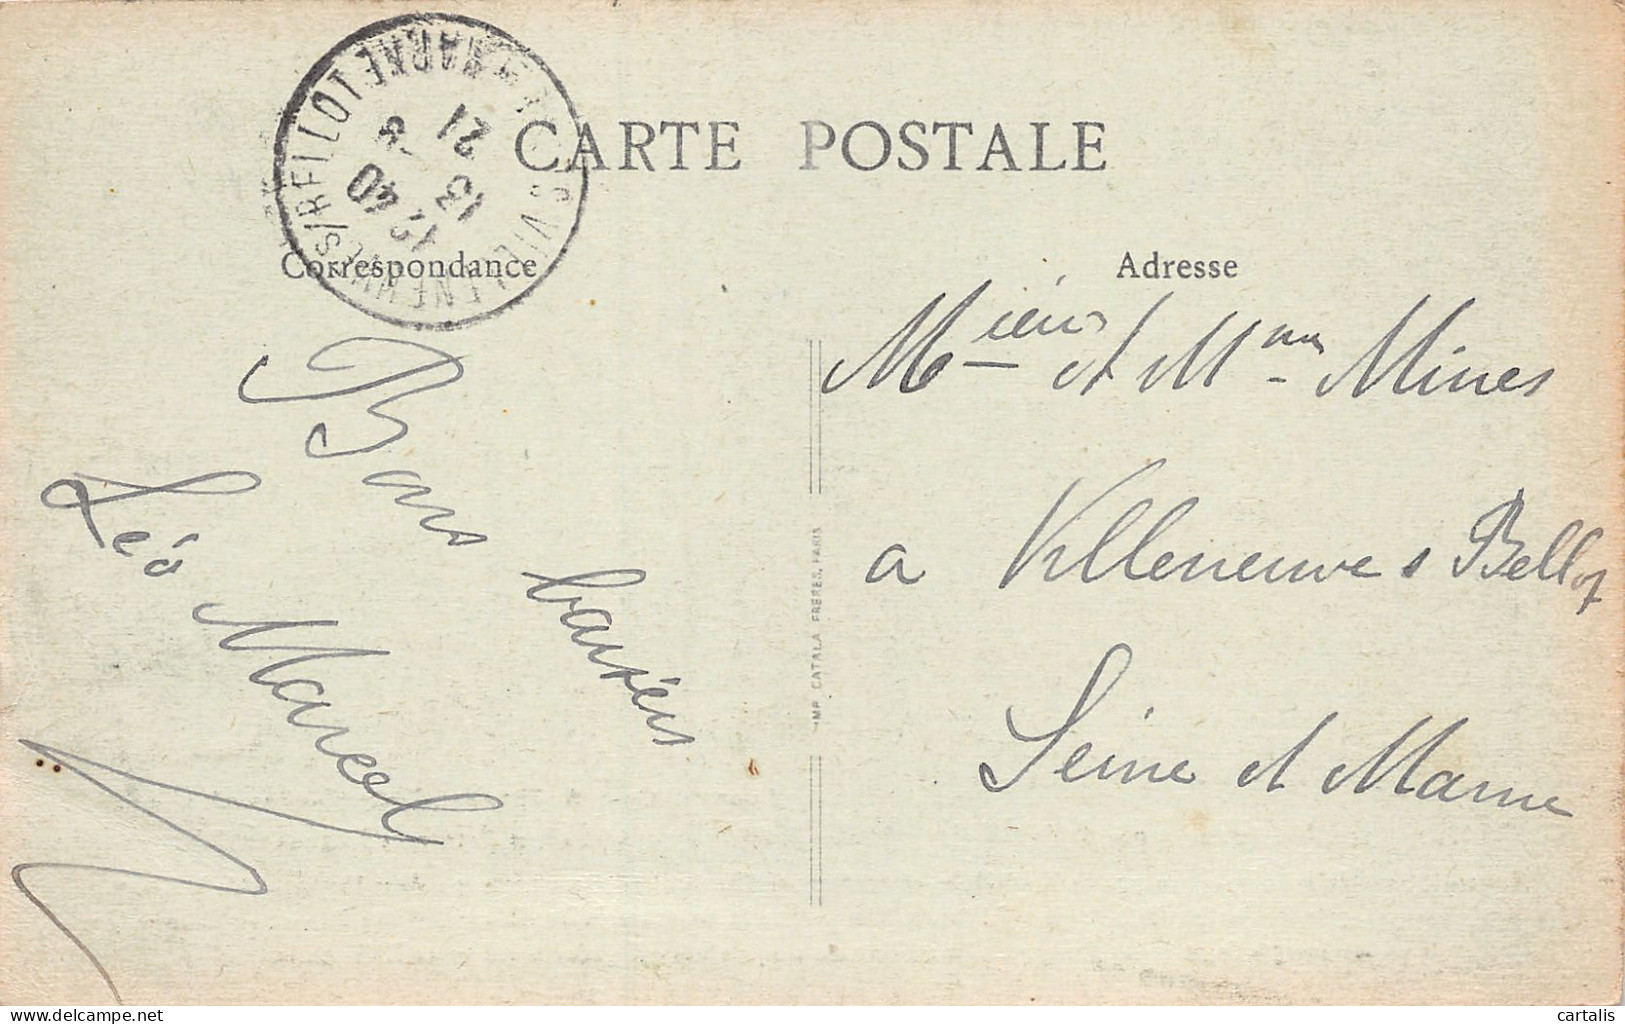 CARTE POSTALE
Correspondance
Adresse
VILLENEUVE S/BELLOT
MARNE
13 40
13 - 5
21
Bons baisers
Léo Marcel
Msieur et Mme Mines
a Villeneuve s Bellot
Seine et Marne
IMP. CATALA FRERES, PARIS
cartalis